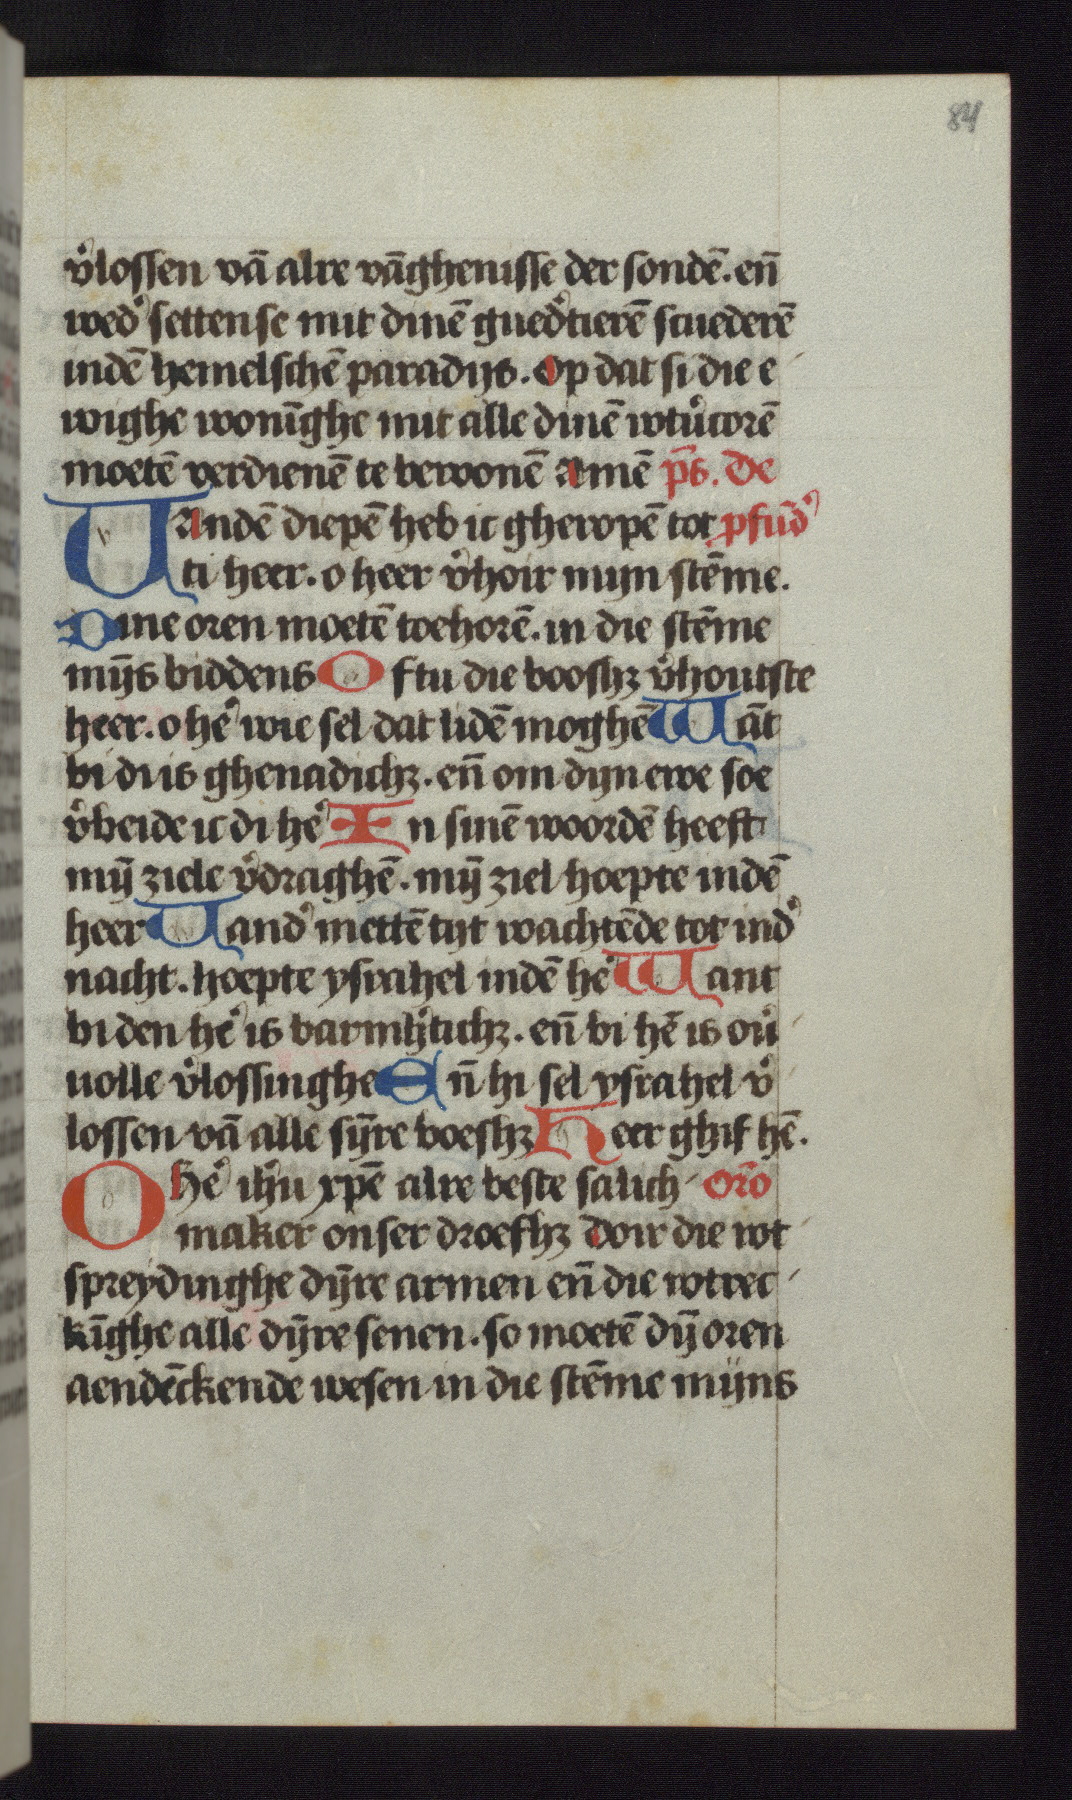 84
v̾lossen vā alre vāghenisse der sondē. en̄
wed̾ settense mit dinē gued̾tierē scuederē
indē hemelschē paradijs. Op dat si die e
wighe wonīghe mit alle dinē wtv̾corē
moetē verdienē te bewonē Amē p̄s. De
VAndē diepē heb ic gheropē tot pfūd̾
ti heer. o heer v̾hoir mijn stēme.
Dine oren moetē toehorē. in die stēme
mījs biddens Oftu die booshꝫ v̾houtste
heer. o he̾ wie sel dat lidē moghē Wāt
bi di is ghenadichꝫ. en̄ om dijn ewe soe
v̾beide ic di he̾ In sinē woordē heeft
mij̄ ziele v̾draghē. mij̄ ziel hoepte indē
heer Vand̾ mettē tijt wachtēde tot ind̾
nacht. hoepte ysrahel indē he̾ Want
bi den he̾ is barmh̾tichꝫ. en̄ bi hē is ov̾
uolle v̾lossinghe En̄ hi sel ysrahel v̾
lossen vā alle sij̄re boeshꝫ Heer ghif hē.
O he̾ ih̄u xpē alre beste salich or̄o
maker onser droefhꝫ Doir die wt
spreydinghe dij̄re armen en̄ die wtrec
kīghe alle dij̄re senen. so moetē dij̄ oren
aendēckende wesen in die stēme mijns